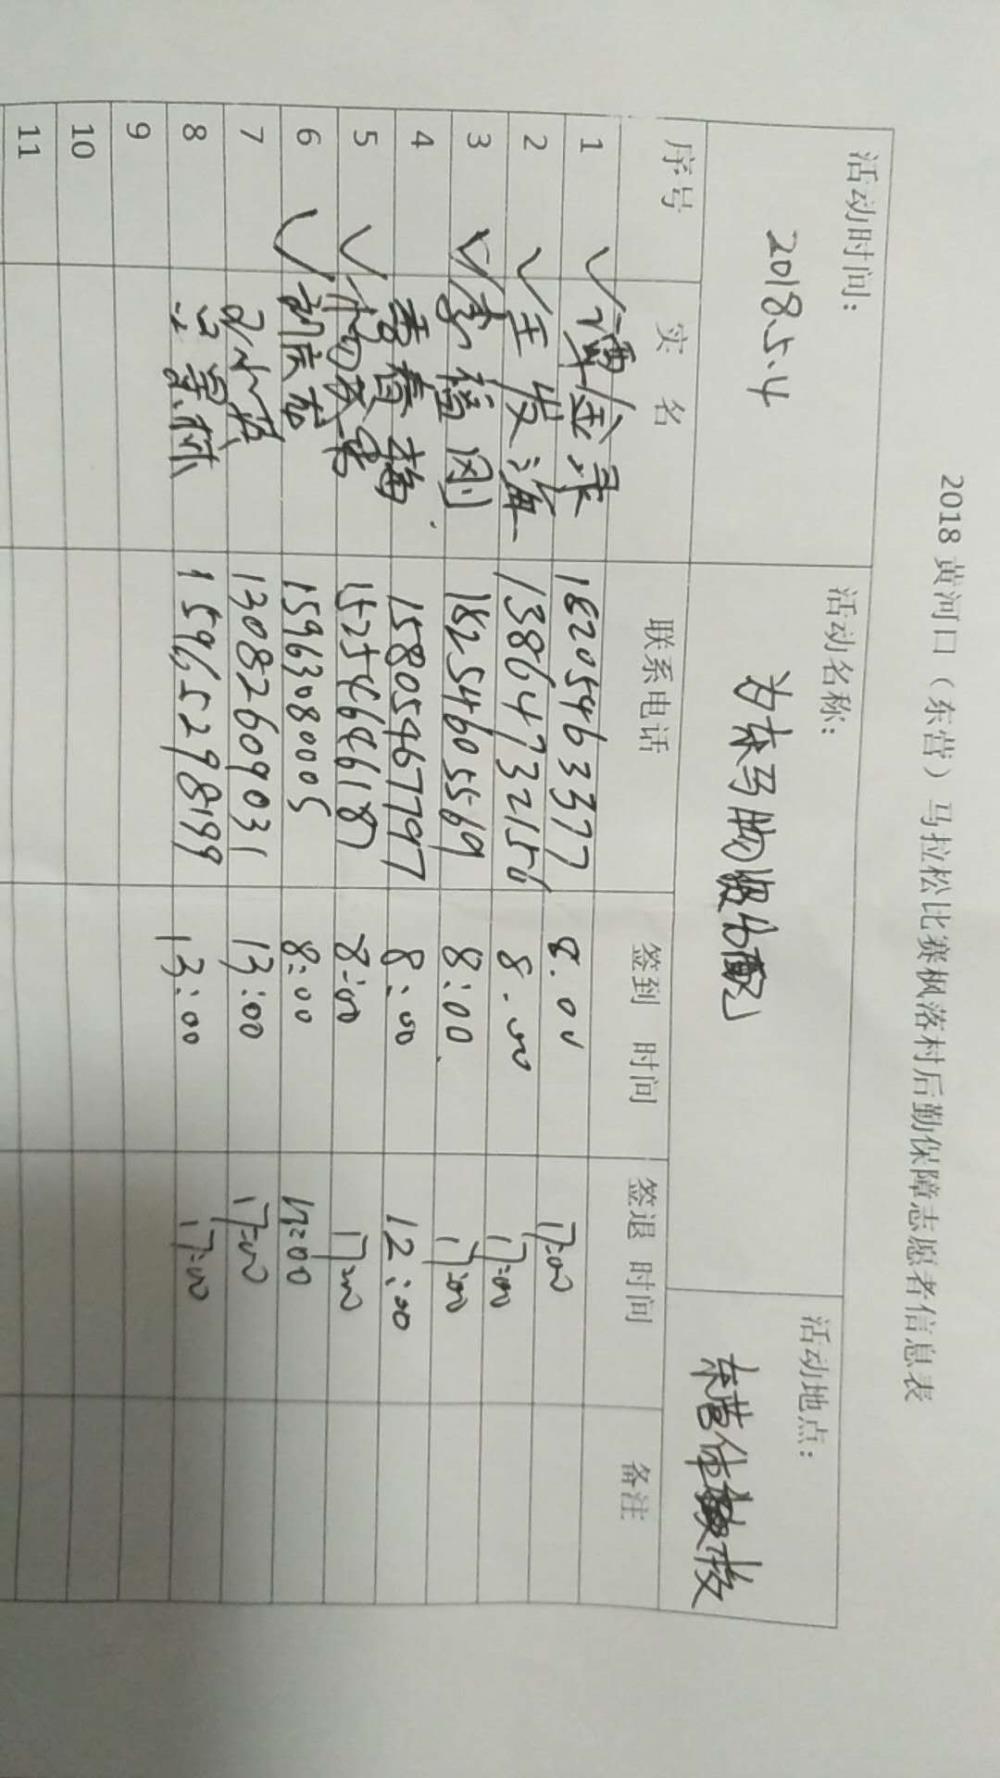 2018 黄河口（东营）马拉松比赛枫落村后勤保障志愿者信息表
活动时间： 活动名称： 活动地点：
2018.5.4 为东马物资分配 东营体校
序号 实 名 联系电话 签到 时间 签退 时间 备注
1 谭金录 18205463377 8.00 17:00
2 王发海 13864732156 8.00 17:00
3 李福刚 18254605569 8:00 17:00
4 春梅 15805467797 8:00 12:00
5 杨 15254646187 8:00 17:00
6 胡庆 15963080005 8:00 17:00
7 13082609031 13:00 17:00
8 景林 15965298199 13:00 17:00
9
10
11